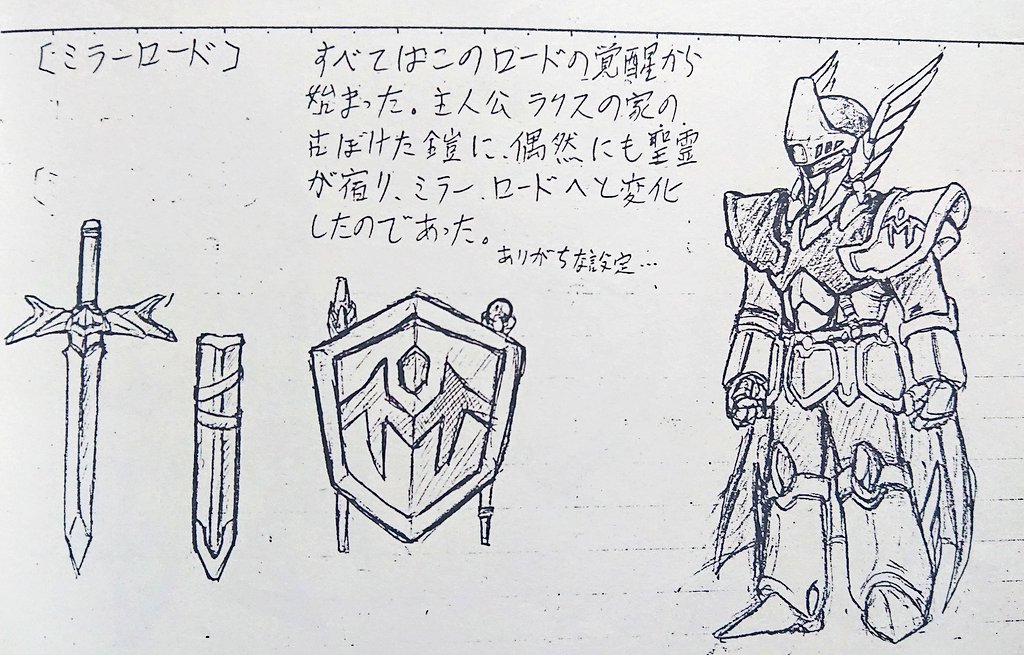 [ミラーロード]
すべてはこのロードの覚醒から
始まった。主人公 ラリスの家の
古ぼけた鎧に、偶然にも聖霊
が宿り、ミラーロードへと変化
したのであった。
ありがちな設定…
M
M